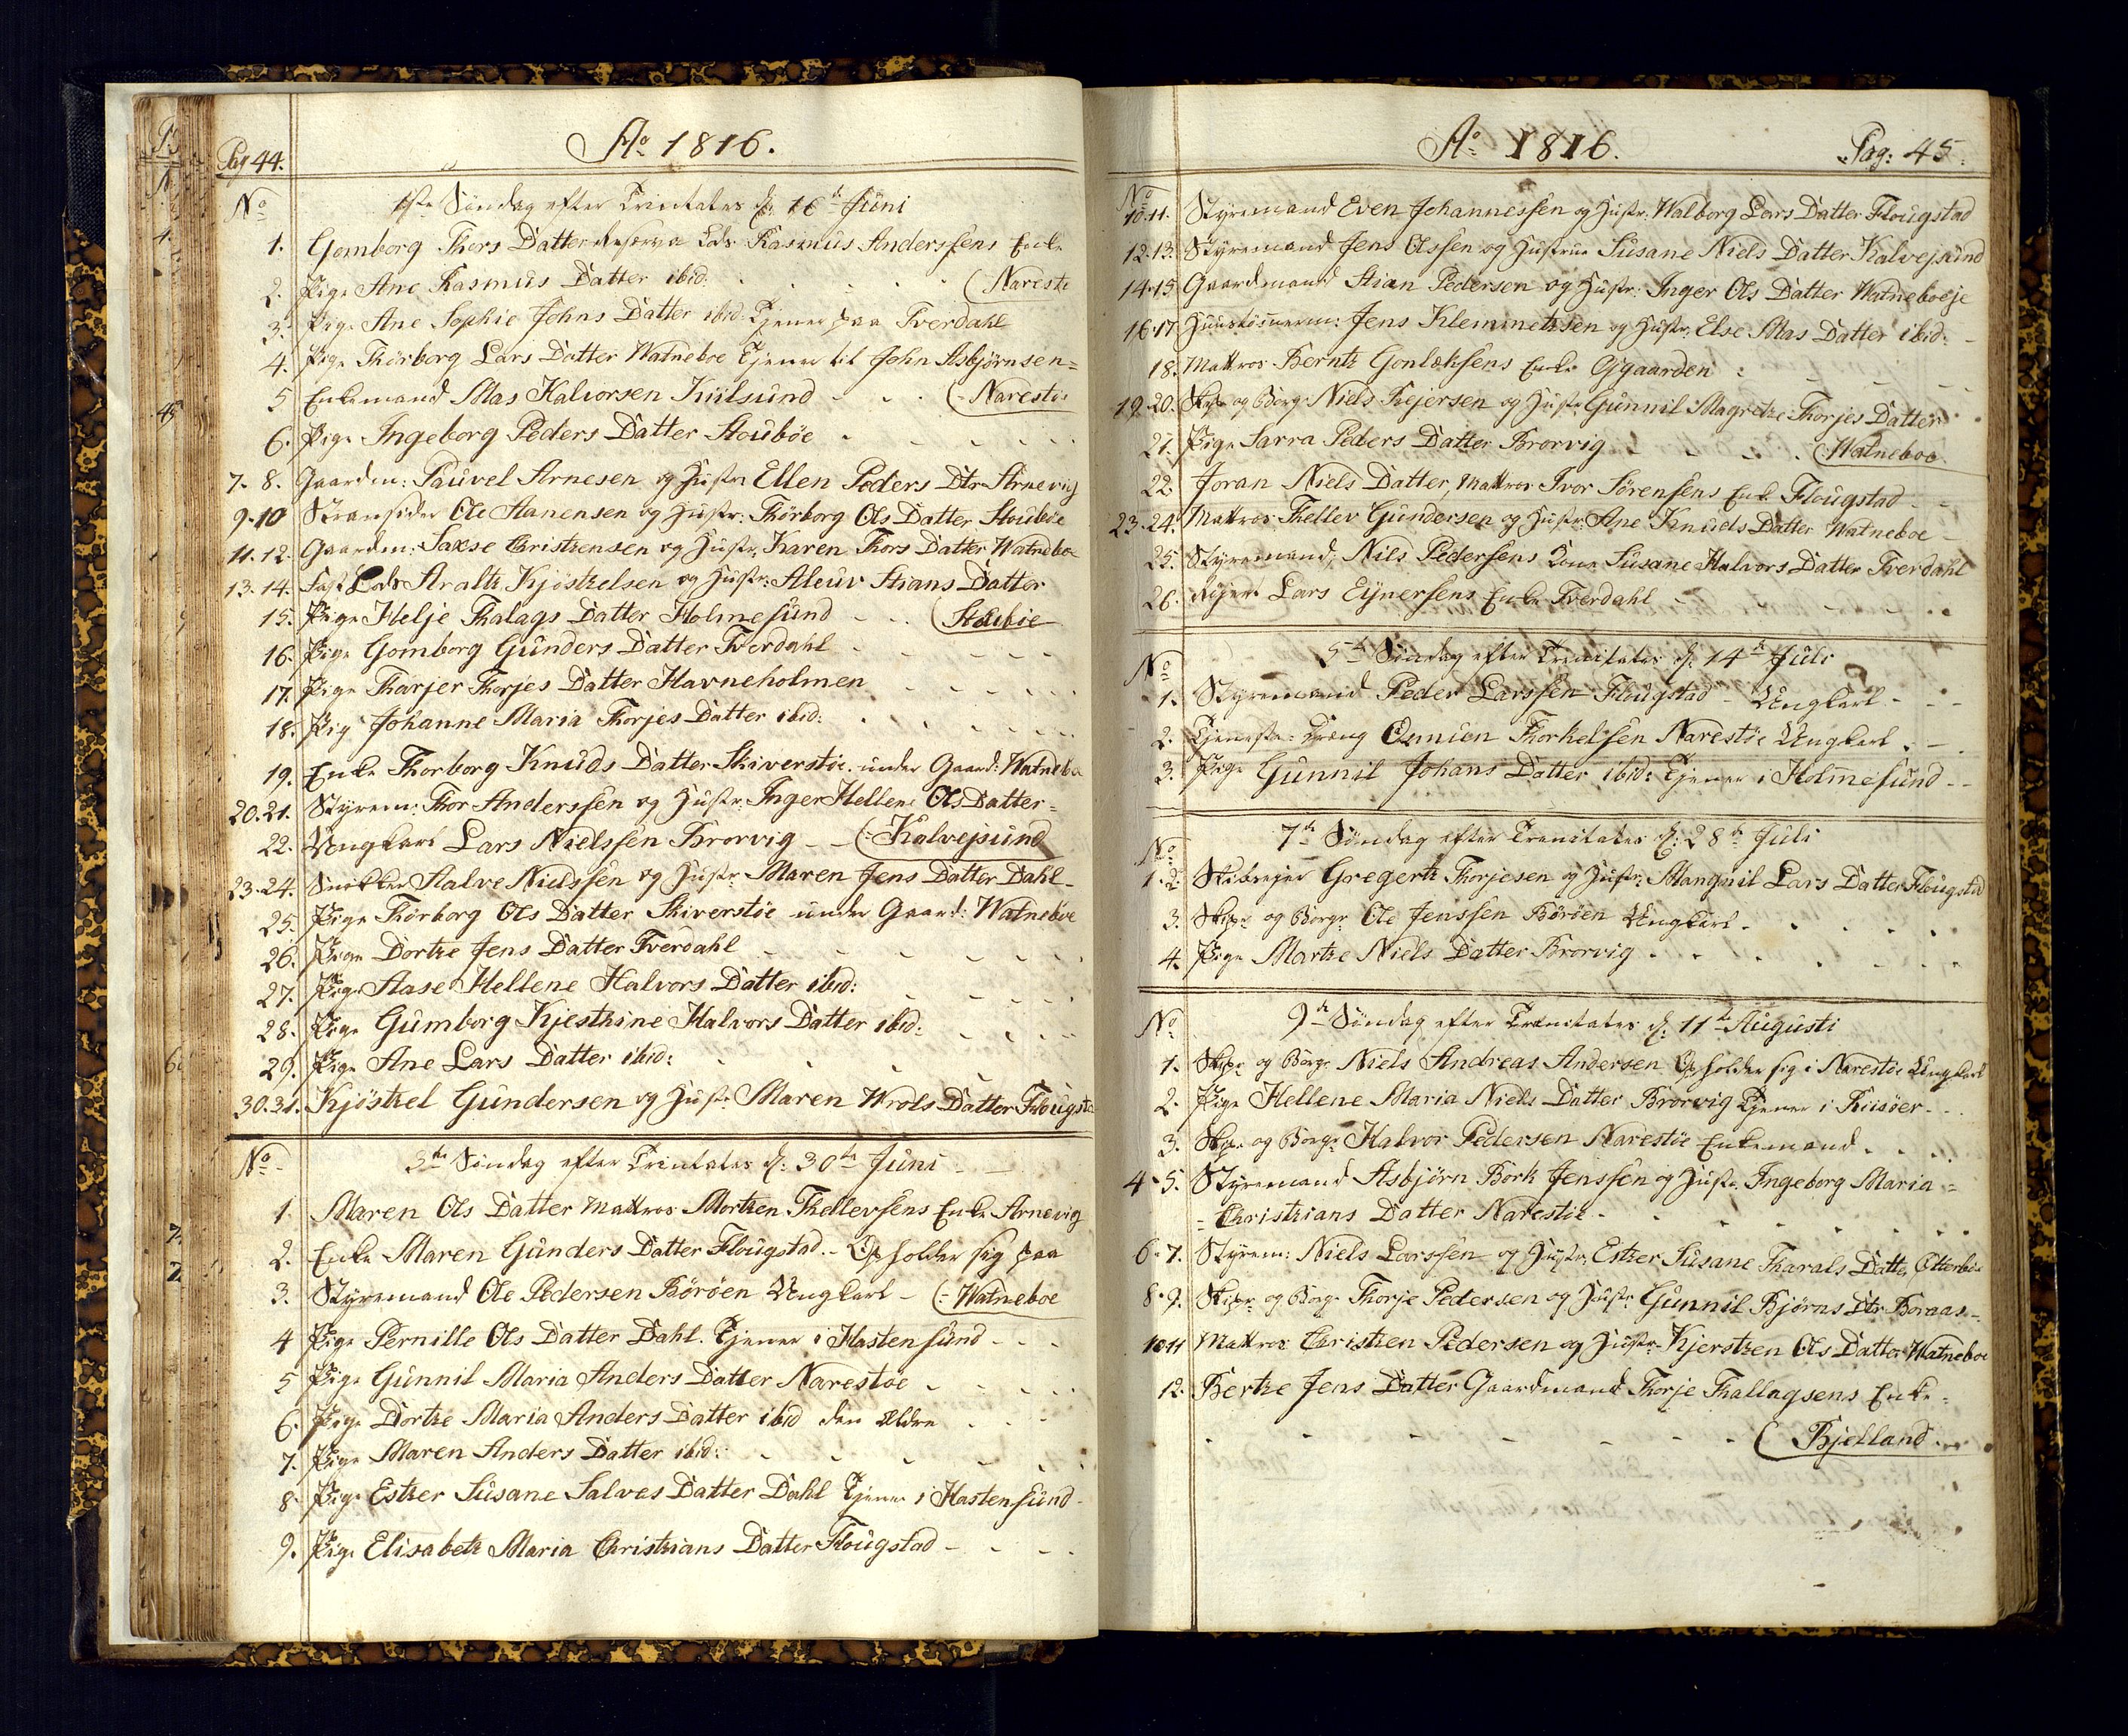 Pag 44.
Ao 1816.
No
1ste Söndag efter Trinitates d: 16de Juni
1. Gomborg Thors Datter Reserva Lods Rasmus Anderssens Enke
2. Pige Ane Rasmus Datter ibid: (Narestö
3. Pige Ane Sophie Johns Datter ibid: Tjener paa Tverdahl
4. Pige Thörborg Lars Datter Watneboe Tjener til John Asbjörnsen =
5 Enkemand Mas Halvorsen Kiilsund (= Narestöe
6. Pige Ingeborg Peders Datter Stouböe
7. 8. Gaardm: Pauvel Arnesen og Hustr: Ellen Peders Dtr Arnevig
9. 10 Ole Hanensen og Hustr: Thörborg Ols Datter Stouböe
11. 12. Gaardm: Saxse Christensen og Hustr: Karen Thors Datter Watneboe
13. 14. Fast Lods Araltz Kjöstzelsen og Hustr: Aleur Stians Datter
15. Pige Helje Thalags Datter Holmesund (Stouböe
16. Pige Gomborg Gunders Datter Tverdahl
17. Pige Tharjer Thorjes Datter Havneholmen
18. Pige Johanne Maria Thorjes Datter ibid:
19. Enke Thorborg Knuds Datter Skiverstöe under Gaard: Watneboe
20. 21. Styrem: Thor Anderssen og Hustr: Inger Hellene Ols Datter =
22. Ungkarl Lars Nielssen Brorvig (= Kalvejsund
23. 24. Snikker Halve Nielssen og Hustr: Maren Jens Datter Dahl
25. Pige Thörborg Ols Datter Skiverstöe under Gaard: Watneböe
26. Pige Dortze Jens Datter Tverdahl
27. Pige Aase Hellene Halvors Datter ibid:
28. Pige Gumborg Kjestzine Halvors Datter ibid:
29. Pige Ane Lars Datter ibid:
30. 31. Kjöstzel Gundersen og Hustr: Maren Wrols Datter Flougstad
No
3de Söndag efter Trinitates d: 30te Juni
1 Maren Ols Datter Mattros Mortzen Thellevsens Enke Arnevig
2. Enke Maren Gunders Datter Flougstad. Opholder sig paa
3. Styremand Ole Pedersen Böröen Ungkarl (= Watneboe
4 Pige Pernille Ols Datter Dahl. Tjener i Hastensund
5 Pige Gunnil Maria Anders Datter Narestöe
6. Pige Dortze Maria Anders Datter ibid den Eldre
7. Pige Maren Anders Datter ibid:
8. Pige Estzer Susane Salves Datter Dahl Tjener i Hastensund
9. Pige Elisabetz Maria Christzians Datter Flougstad
Ao 1816.
Pag: 45.
No
10. 11. Styremand Even Johannessen og Hustr: Walborg Lars Datter Flougstad
12. 13. Styremand Jens Olssen og Hustrue Susane Niels Datter Kalvejsund
14. 15 Gaardmand Stian Pedersen og Hustr: Inger Ols Datter Watneboeje
16. 17 Jens Klemmetzsen og Hustr: Else Mas Datter ibid:
18. Mattros Berntz Gonlæksens Enke Ggaarden
19. 20. Skipr og Borgr Niels Rejersen og Hustr: Gunnil Magretze Thorjes Datter
21. Pige Sarra Peders Datter Brorvig (Watneboe
22. Joran Niels Datter, Mattros Ivor Sörensens Enke Flougstad
23. 24. Mattros Thellev Gundersen og Hustr: Ane Knuds Datter Watneboe
25. Styremand: Nils Pedersens Kone Susane Halvors Datter Tverdahl
26. Lars Eijnersens Enke Tverdahl
No
5te Söndag efter Trinitates d: 14de Juli
1. Styremand Peder Larssen Flougstad Ungkarl
2. Tjeneste: Dreng Onnien Thorkelssen Narestöe Ungkarl
3. Pige Gunnil Johans Datter ibid: Tjener i Holmesund
No
7de Söndag efter Trinitates d: 28de Juli
1. 2. Skibsejer Gregertz Thorjesen og Hustr: Mangnil Lars Datter Flougstad
3. Skipr og Borgr Ole Jenssen Böröen Ungkarl
4. Pige Martze Niels Datter Brorvig
No
9de Söndag efter Trinitates d: 11te Augusti
1. Skipr og Borgr Niels Andreas Andersen Opholder sig i Narestöe Ungkarl
2. Pige Hellene Maria Niels Datter Brorvig Tjener i Riisöer
3. Skipr og Borgr Halvor Pedersen Narestöe Enkemand
4. 5. Styremand Asbjörn Bork Jenssen og Hustr: Ingeborg Maria =
= Christzians Datter Narestöe
6. 7. Styrem: Niels Larssen og Hustr: Estzer Susane Tharals Datter Otterböe
8. 9. Skipr og Borgr Thorje Pedersen og Hustr: Gunnil Björns Dtr Boraas
10 11 Mattros Christzen Pedersen og Hustr: Kjerstzen Ols Datter Watneboe
12. Bertze Jens Datter Gaardmand Thorje Thallagsens Enke =
(Bjelland